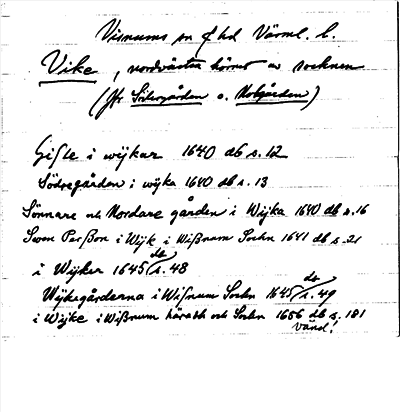 Visnums sn f hd Värml. l.
Vike, nordvästra hörnet av socknen
(Jfr Södergården o. Nolgården)
Gisle i wijkar 1640 db s. 12
Södregården i wijka 1640 db s. 13
Sönnare och Nordare gården i Wijka 1640 db s. 16
Swen Perßon i Wijk i Wißnum Sochn 1641 db s. 21
i Wijker 1645 db s. 48
Wijkegårderna i Wisnum Sochn 1645 db s. 49
i Wijke i Wißnum häradh och Sochn 1656 db s. 181
vänd!